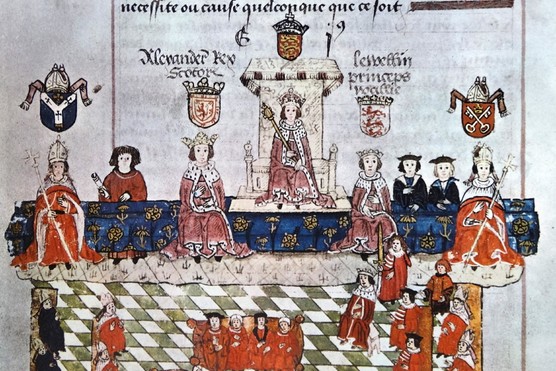 necessite ou cause quelconque que ce soit
E j9
Alexander Rex
Scotorx
lewellin
princeps
wallie